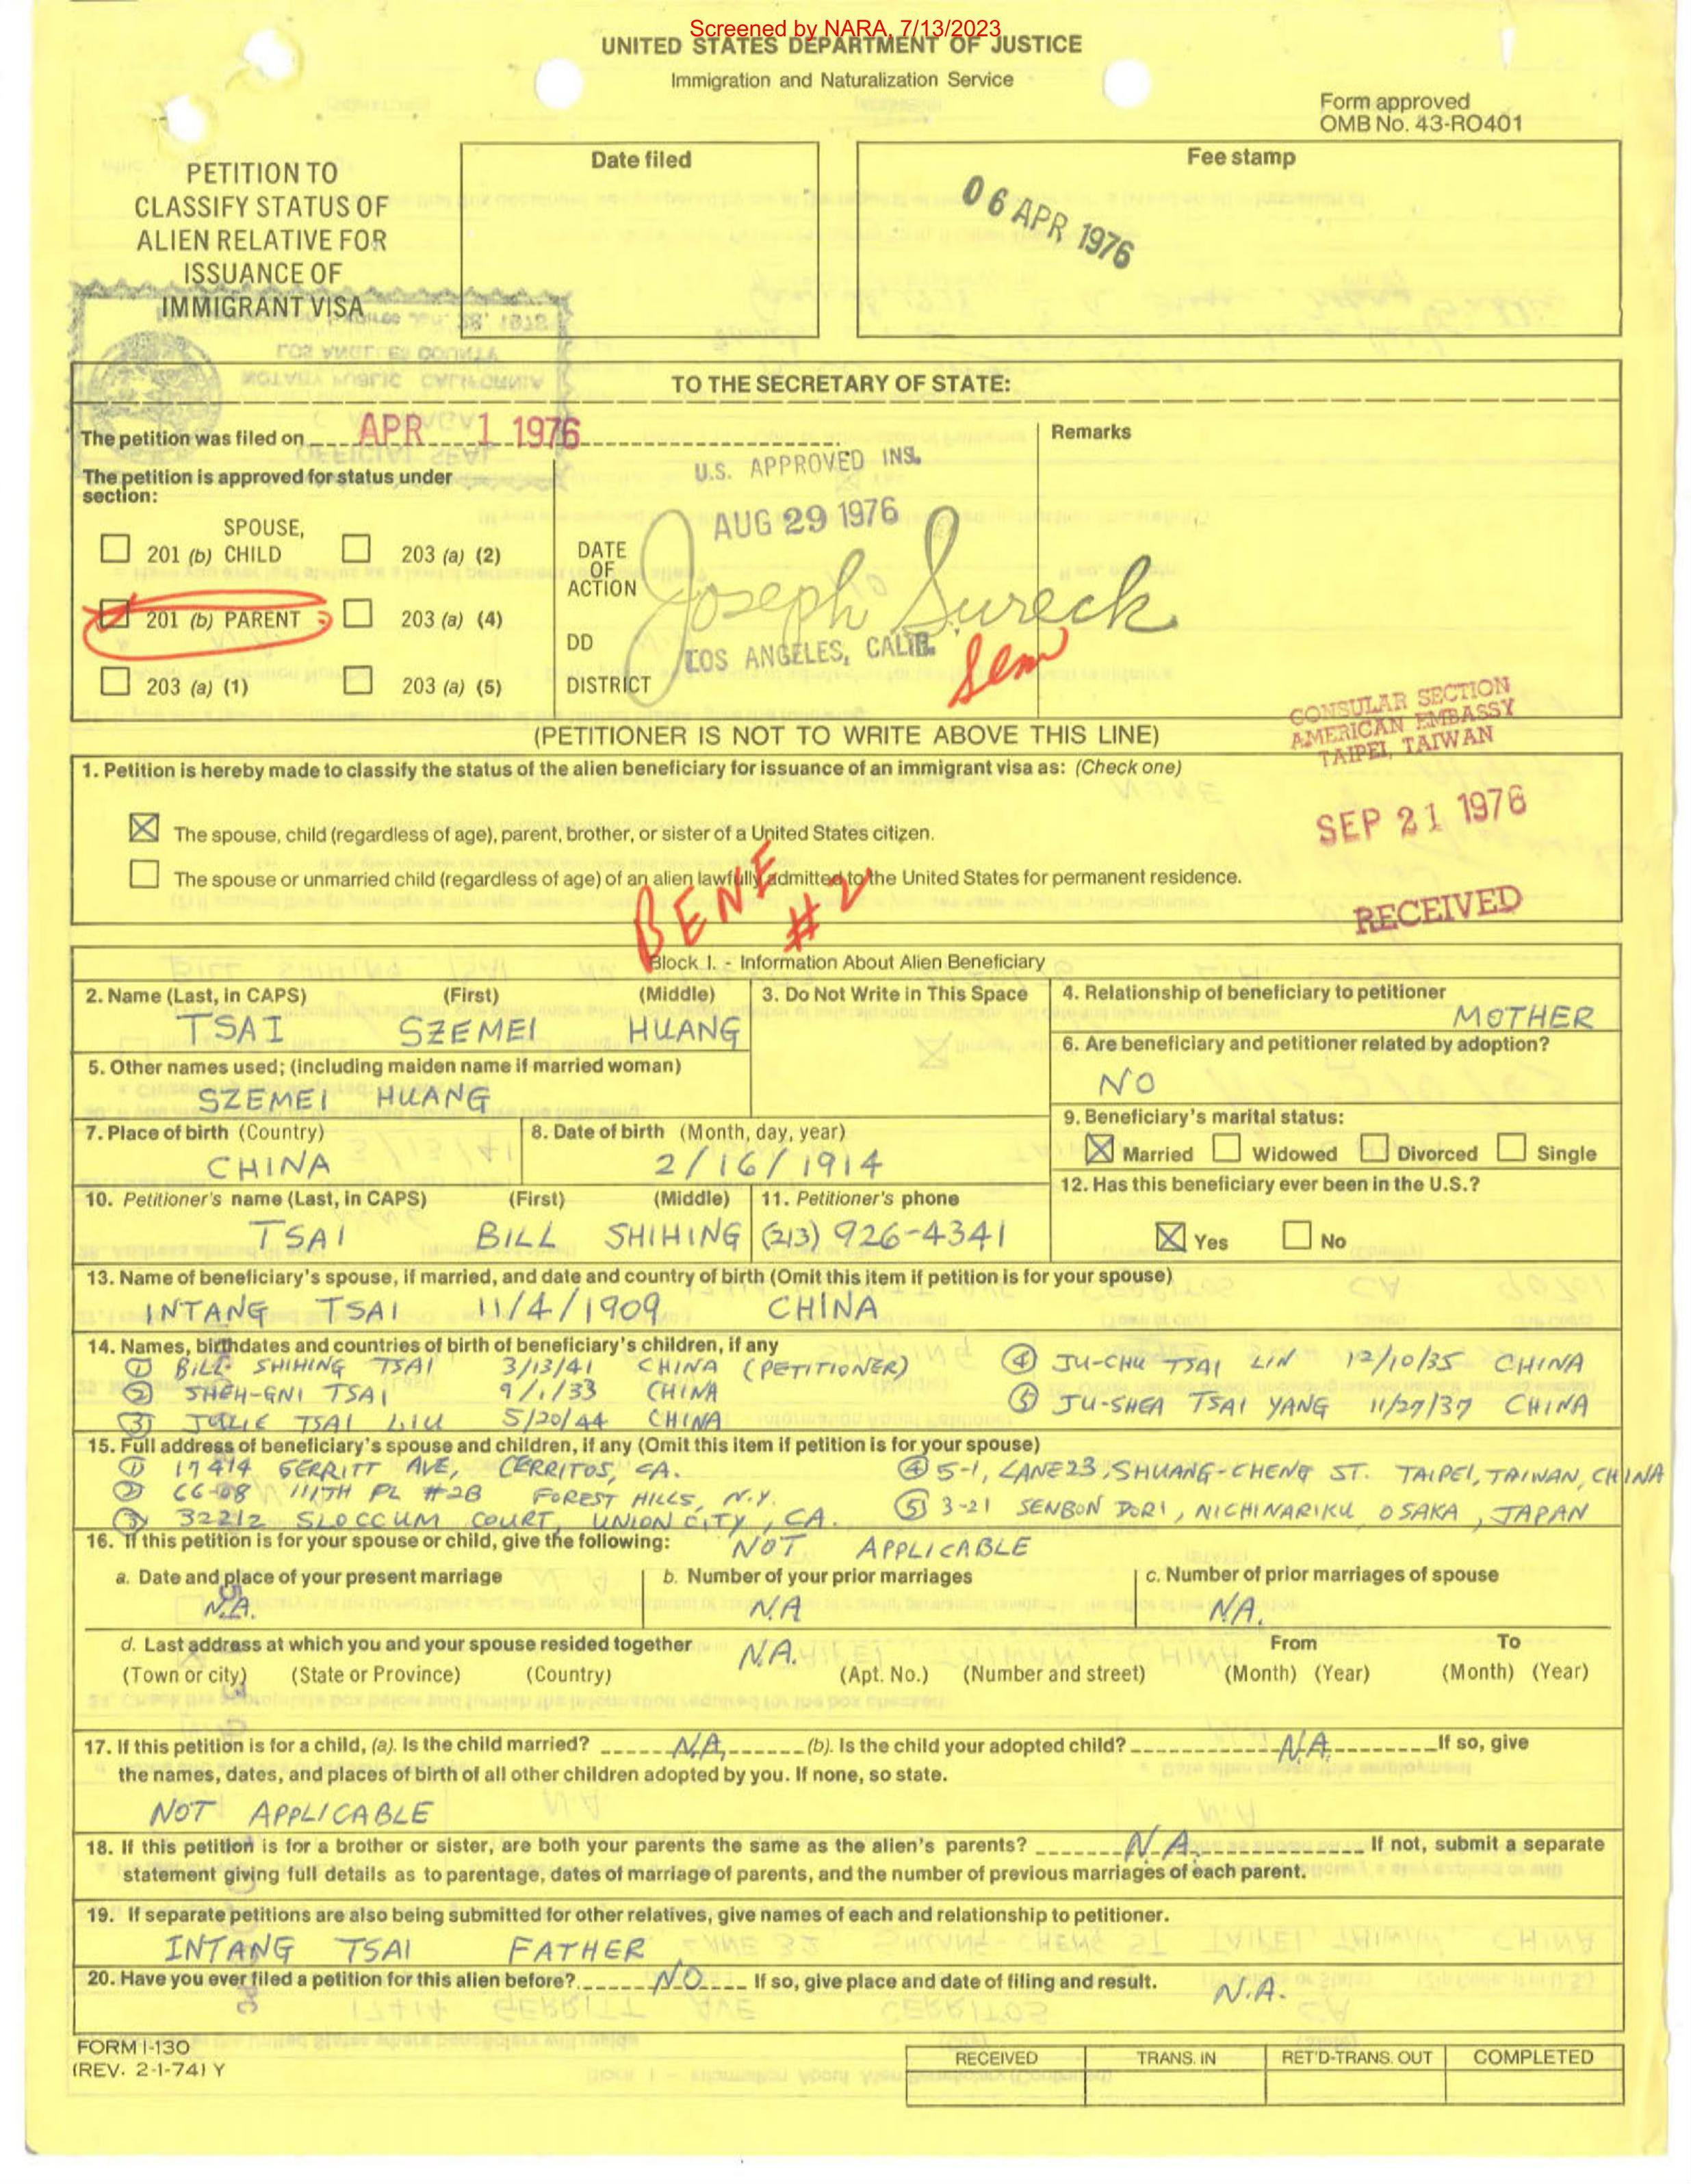 Screened by NARA, 7/13/2023
UNITED STATES DEPARTMENT OF JUSTICE
Immigration and Naturalization Service
Form approved
OMB No. 43-RO401
PETITION TO
CLASSIFY STATUS OF
ALIEN RELATIVE FOR
ISSUANCE OF
IMMIGRANT VISA
Date filed
Fee stamp
06 APR 1976
TO THE SECRETARY OF STATE:
The petition was filed on APR 1 1976
Remarks
The petition is approved for status under
section:
U.S. APPROVED INS.
AUG 29 1976
SPOUSE,
201 (b) CHILD 203 (a) (2)
DATE
OF
ACTION
Joseph Sureck
201 (b) PARENT 203 (a) (4)
DD
LOS ANGELES, CALIF.
Sem
203 (a) (1) 203 (a) (5)
DISTRICT
(PETITIONER IS NOT TO WRITE ABOVE THIS LINE)
CONSULAR SECTION
AMERICAN EMBASSY
TAIPEI, TAIWAN
SEP 21 1976
RECEIVED
1. Petition is hereby made to classify the status of the alien beneficiary for issuance of an immigrant visa as: (Check one)
The spouse, child (regardless of age), parent, brother, or sister of a United States citizen.
The spouse or unmarried child (regardless of age) of an alien lawfully admitted to the United States for permanent residence.
BENE #2
Block I. - Information About Alien Beneficiary
2. Name (Last, in CAPS) (First) (Middle)
TSAI SZEMEI HUANG
3. Do Not Write in This Space
4. Relationship of beneficiary to petitioner
MOTHER
5. Other names used; (including maiden name if married woman)
SZEMEI HUANG
6. Are beneficiary and petitioner related by adoption?
NO
7. Place of birth (Country)
CHINA
8. Date of birth (Month, day, year)
2/16/1914
9. Beneficiary's marital status:
Married Widowed Divorced Single
10. Petitioner's name (Last, in CAPS) (First) (Middle)
TSAI BILL SHIHING
11. Petitioner's phone
(213) 926-4341
12. Has this beneficiary ever been in the U.S.?
Yes No
13. Name of beneficiary's spouse, if married, and date and country of birth (Omit this item if petition is for your spouse)
INTANG TSAI 11/4/1909 CHINA
14. Names, birthdates and countries of birth of beneficiary's children, if any
① BILL SHIHING TSAI 3/13/41 CHINA (PETITIONER) ④ JU-CHU TSAI LIN 12/10/35 CHINA
② SHEH-GNI TSAI 9/1/33 CHINA
③ JULIE TSAI LIU 5/20/44 CHINA ⑤ JU-SHEA TSAI YANG 11/27/37 CHINA
15. Full address of beneficiary's spouse and children, if any (Omit this item if petition is for your spouse)
① 17414 GERRITT AVE, CERRITOS, CA. ④ 5-1, LANE 23, SHUANG-CHENG ST. TAIPEI, TAIWAN, CHINA
② 66-08 111TH PL #2B FOREST HILLS, N.Y.
③ 32212 SLOCCUM COURT, UNION CITY, CA. ⑤ 3-21 SENBON DORI, NICHINARIKU, OSAKA, JAPAN
16. If this petition is for your spouse or child, give the following: NOT APPLICABLE
a. Date and place of your present marriage b. Number of your prior marriages c. Number of prior marriages of spouse
N.A. N.A N.A.
d. Last address at which you and your spouse resided together N.A. From To
(Town or city) (State or Province) (Country) (Apt. No.) (Number and street) (Month) (Year) (Month) (Year)
17. If this petition is for a child, (a). Is the child married? N.A. (b). Is the child your adopted child? N.A. If so, give
the names, dates, and places of birth of all other children adopted by you. If none, so state.
NOT APPLICABLE
18. If this petition is for a brother or sister, are both your parents the same as the alien's parents? N.A. If not, submit a separate
statement giving full details as to parentage, dates of marriage of parents, and the number of previous marriages of each parent.
19. If separate petitions are also being submitted for other relatives, give names of each and relationship to petitioner.
INTANG TSAI FATHER
20. Have you ever filed a petition for this alien before? NO If so, give place and date of filing and result. N.A.
FORM I-130
(REV. 2-1-74) Y
RECEIVED TRANS. IN RET'D-TRANS. OUT COMPLETED